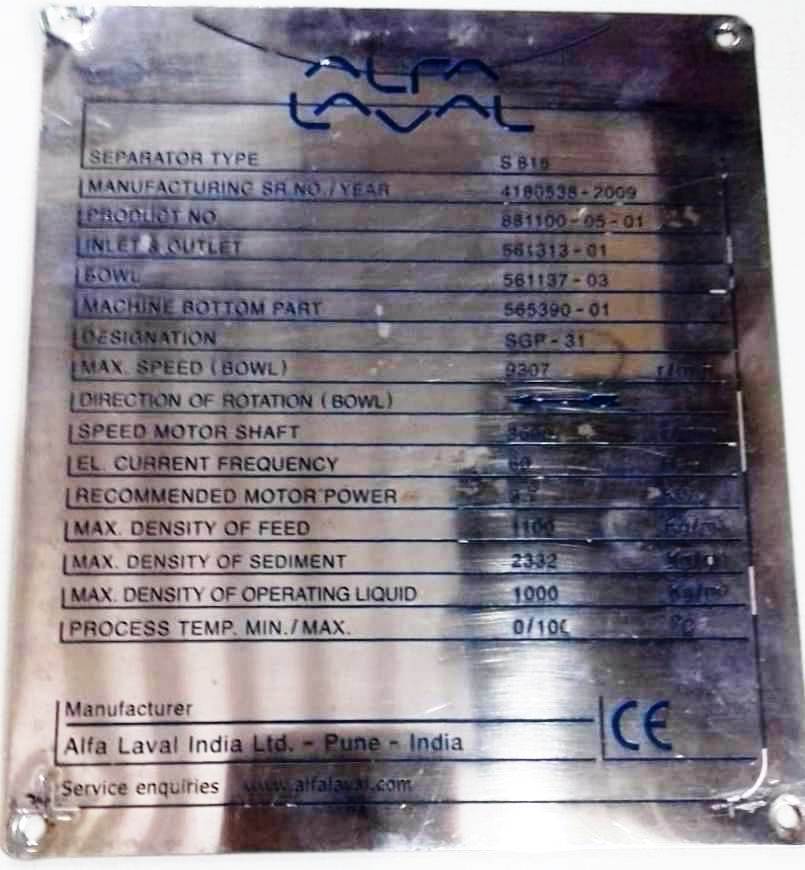 ALFA
LAVAL
SEPARATOR TYPE S 815
MANUFACTURING SR NO. / YEAR 4180538 - 2009
PRODUCT NO 881100 - 05 - 01
INLET & OUTLET 561313 - 01
BOWL 561137 - 03
MACHINE BOTTOM PART 565390 - 01
DESIGNATION SGP - 31
MAX. SPEED ( BOWL ) 9307
DIRECTION OF ROTATION ( BOWL )
SPEED MOTOR SHAFT
EL. CURRENT FREQUENCY
RECOMMENDED MOTOR POWER
MAX. DENSITY OF FEED 1100 Kg/m³
MAX. DENSITY OF SEDIMENT 2332
MAX. DENSITY OF OPERATING LIQUID 1000 Kg/m³
PROCESS TEMP. MIN. / MAX. 0/100 °C
Manufacturer
Alfa Laval India Ltd. - Pune - India
CE
Service enquiries www.alfalaval.com